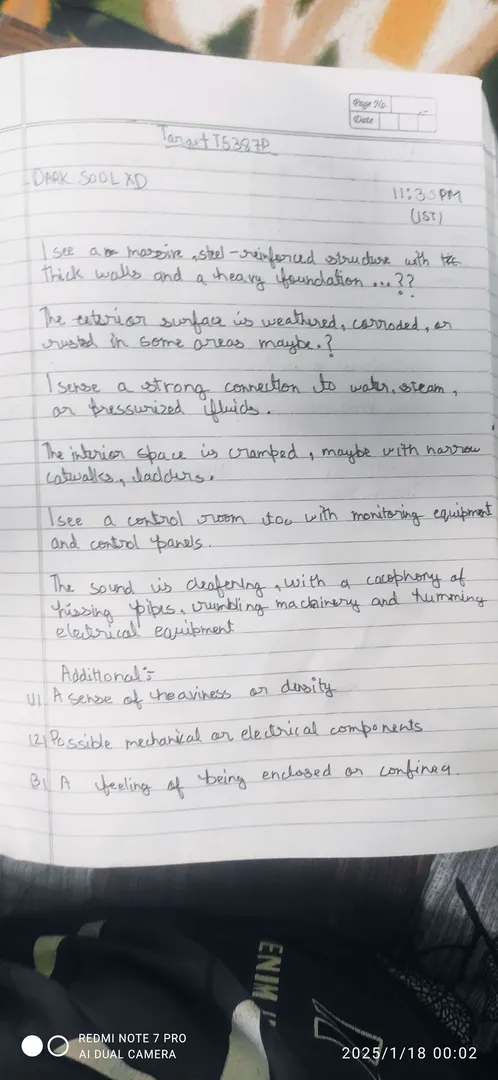 Page No.
Date
Target T5387P
- DARK SOOL XD
11:30PM
(IST)
I see a massive, steel-reinforced structure with
thick walls and a heavy foundation ...??
The exterior surface is weathered, corroded, or
rusted in some areas maybe.?
I sense a strong connection to water, steam,
or pressurized fluids.
The interior space is cramped, maybe with narrow
catwalks, ladders.
I see a control room too with monitoring equipment
and control panels.
The sound is deafening, with a cacophony of
hissing pipes, rumbling machinery and humming
electrical equipment
Additional:-
(1) A sense of heaviness or density
(2) Possible mechanical or electrical components
(3) A feeling of being enclosed or confined.
ENIM
REDMI NOTE 7 PRO
AI DUAL CAMERA
2025/1/18 00:02